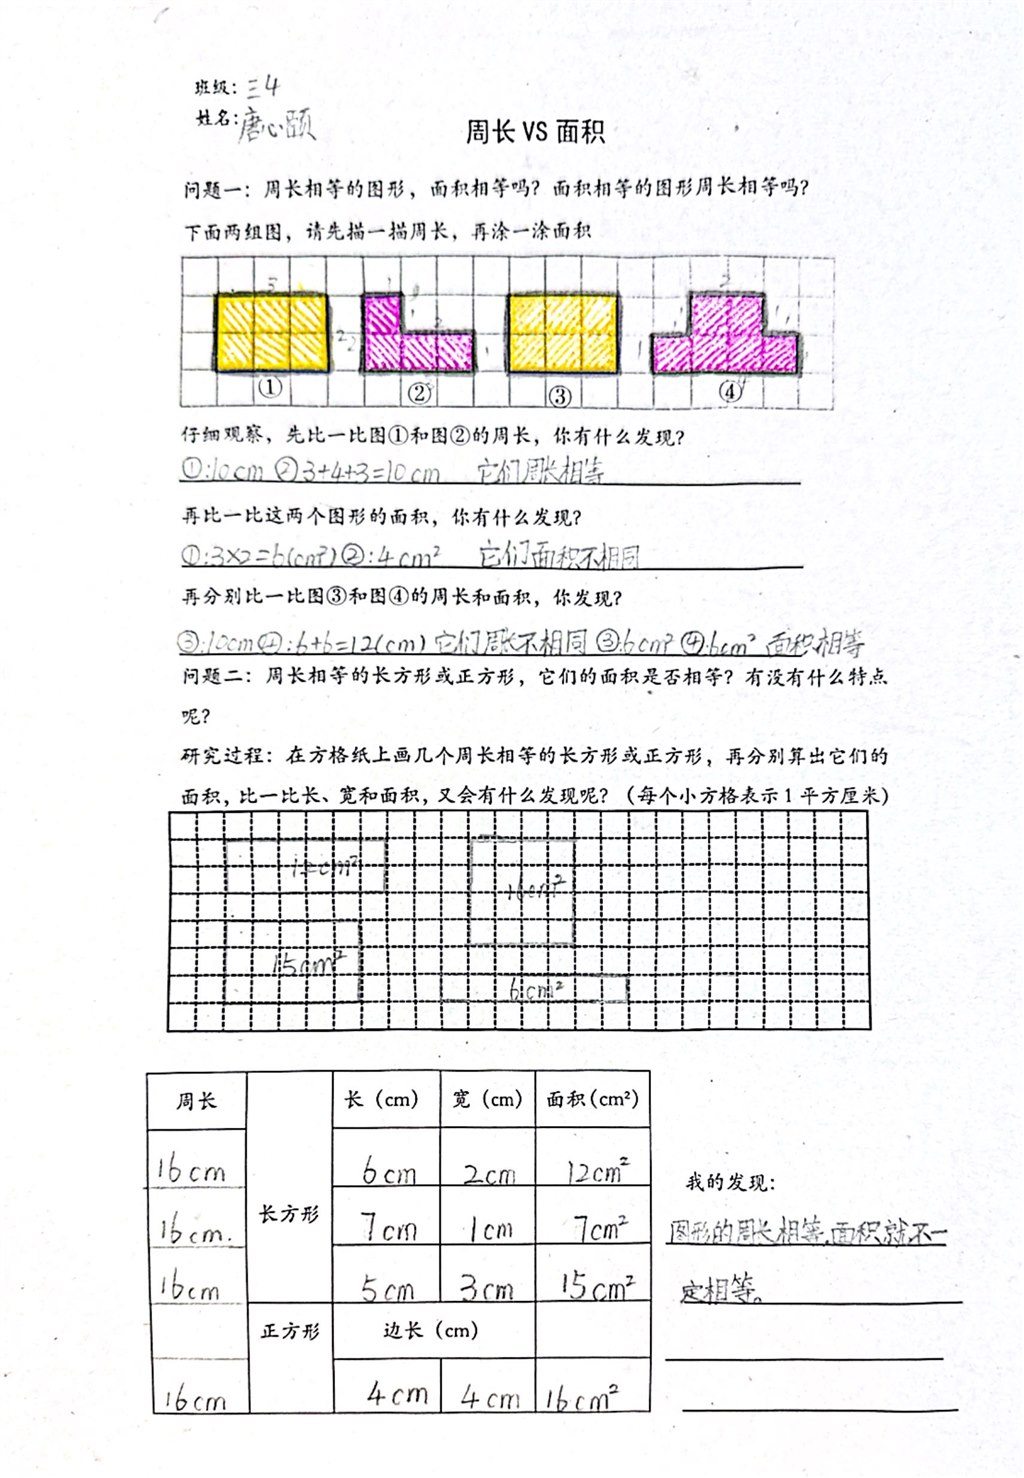 班级：三4
姓名：唐心颐
周长 VS 面积
问题一：周长相等的图形，面积相等吗？面积相等的图形周长相等吗？
下面两组图，请先描一描周长，再涂一涂面积
3 1 2
1 1 1
2 2 2 1 1
① ② ③ ④
仔细观察，先比一比图①和图②的周长，你有什么发现？
①:10cm ②3+4+3=10cm 它们周长相等
再比一比这两个图形的面积，你有什么发现？
①:3×2=6(cm²) ②:4cm² 它们面积不相同
再分别比一比图③和图④的周长和面积，你发现？
③:10cm ④:6+6=12(cm) 它们周长不相同 ③:6cm² ④:6cm² 面积相等
问题二：周长相等的长方形或正方形，它们的面积是否相等？有没有什么特点
呢？
研究过程：在方格纸上画几个周长相等的长方形或正方形，再分别算出它们的
面积，比一比长、宽和面积，又会有什么发现呢？（每个小方格表示1平方厘米）
12cm²
16cm²
15cm²
6cm²
周长 长（cm） 宽（cm） 面积(cm²)
16cm 6cm 2cm 12cm²
长方形
16cm. 7cm 1cm 7cm²
16cm 5cm 3cm 15cm²
正方形 边长（cm）
16cm 4cm 4cm 16cm²
我的发现：
图形的周长相等，面积就不一
定相等。